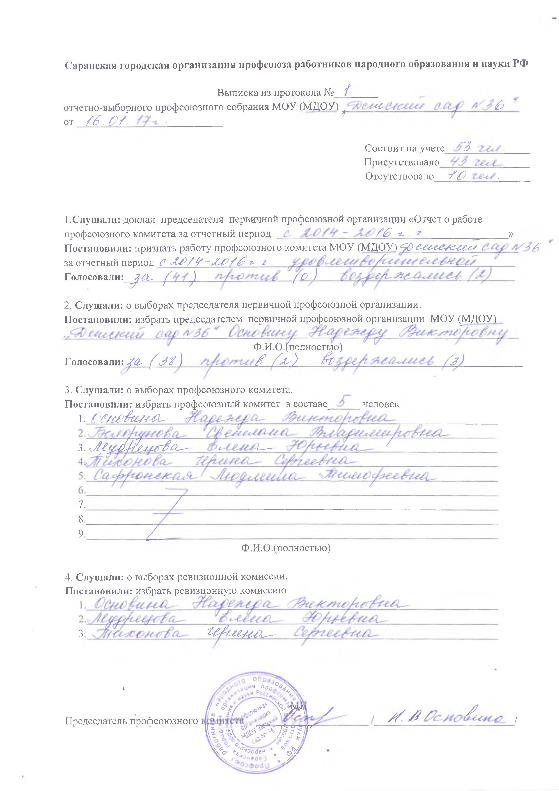 Саранская городская организация профсоюза работников народного образования и науки РФ
Выписка из протокола № 1
отчетно-выборного профсоюзного собрания МОУ (МДОУ) „Детский сад №36"
от 16.01.17г.
Состоит на учете 53 чел.
Присутствовало 43 чел.
Отсутствовало 10 чел.
1.Слушали: доклад председателя первичной профсоюзной организации «Отчет о работе
профсоюзного комитета за отчетный период с 2014-2016 г. г »
Постановили: признать работу профсоюзного комитета МОУ (МДОУ) Детский сад №36"
за отчетный период с 2014-2016 г г удовлетворительной
Голосовали: за (41) против (0) воздержались (2)
2. Слушали: о выборах председателя первичной профсоюзной организации.
Постановили: избрать председателем первичной профсоюзной организации МОУ (МДОУ)
„Детский сад №36" Основину Надежду Викторовну
Ф.И.О.(полностью)
Голосовали: за (38) против (2) воздержались (3)
3. Слушали: о выборах профсоюзного комитета.
Постановили: избрать профсоюзный комитет в составе 5 человек
1. Основина Надежда Викторовна
2. Светлана Владимировна
3. Елена Юрьевна
4. Тихонова Ирина Сергеевна
5. Сафронская Людмила Тимофеевна
6.
7.
8.
9.
Ф.И.О.(полностью)
4. Слушали: о выборах ревизионной комиссии.
Постановили: избрать ревизионную комиссию
1. Основина Надежда Викторовна
2. Елена Юрьевна
3. Тихонова Ирина Сергеевна
Председатель профсоюзного комитета Н.В Основина